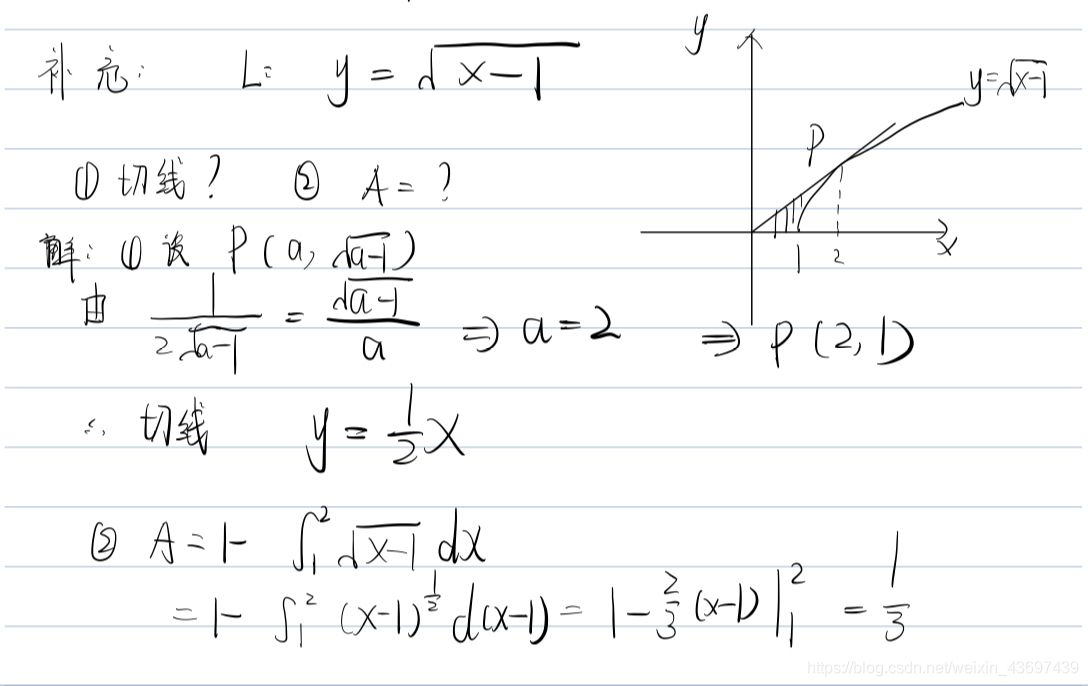 补充: L: y = √(x-1)
① 切线? ② A = ?
解: ① 设 P(a, √(a-1))
由 1/(2√(a-1)) = √(a-1)/a ⇒ a = 2 ⇒ P(2, 1)
∴ 切线 y = 1/2 x
② A = 1 - ∫₁² √(x-1) dx
= 1 - ∫₁² (x-1)^(1/2) d(x-1) = 1 - 2/3 (x-1) |₁² = 1/3
y
y=√(x-1)
P
1 2 x
https://blog.csdn.net/weixin_43697439